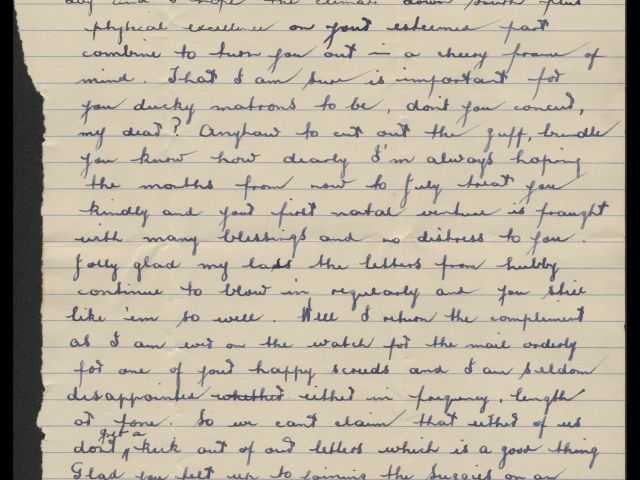 day and I hope the climate down south plus
physical excellence on your esteemed part
combine to turn you out in a cheery frame of
mind. That I am sure is important for
you ducky matrons to be, don't you concur,
my dear? Anyhow to cut out the guff,
you know how dearly I'm always hoping
the months from now to July treat you
kindly and your first natal venture is fraught
with many blessings and no distress to you.
Jolly glad my lass the letters from hubby
continue to blow in regularly and you still
like 'em so well. Well I return the complement
as I am ever on the watch for the mail orderly
for one of your happy screeds and I am seldom
disappointed whether either in frequency, length
or tone. So we can't claim that either of us
don't get a kick out of our letters which is a good thing
Glad you felt up to joining the Suggies on an